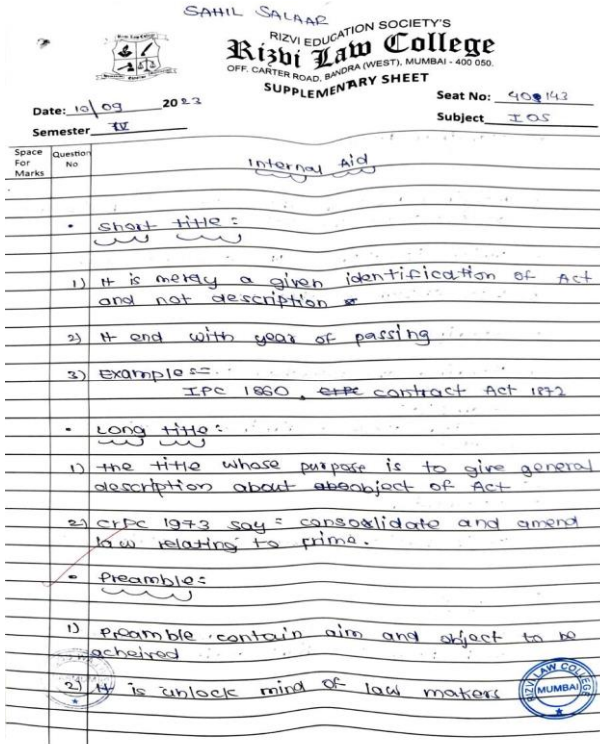 SAHIL SALAAR
RIZVI EDUCATION SOCIETY'S
Rizvi Law College
OFF. CARTER ROAD, BANDRA (WEST), MUMBAI - 400 050.
SUPPLEMENTARY SHEET
Date: 10/09 2023
Seat No: 400143
Semester IV
Subject IOS
Space For Marks
Question No
Internal Aid
• Short title:
1) It is merely a given identification of Act
and not description
2) It end with year of passing
3) Example :=
IPC 1860, contract Act 1872
• Long title:
1) the title whose purpose is to give general
description about object of Act
2) CrPC 1973 say = consolidate and amend
law relating to crime.
• Preamble:
1) Preamble contain aim and object to be
acheived
2) It is unlock mind of law makers
RIZVI LAW COLLEGE
MUMBAI